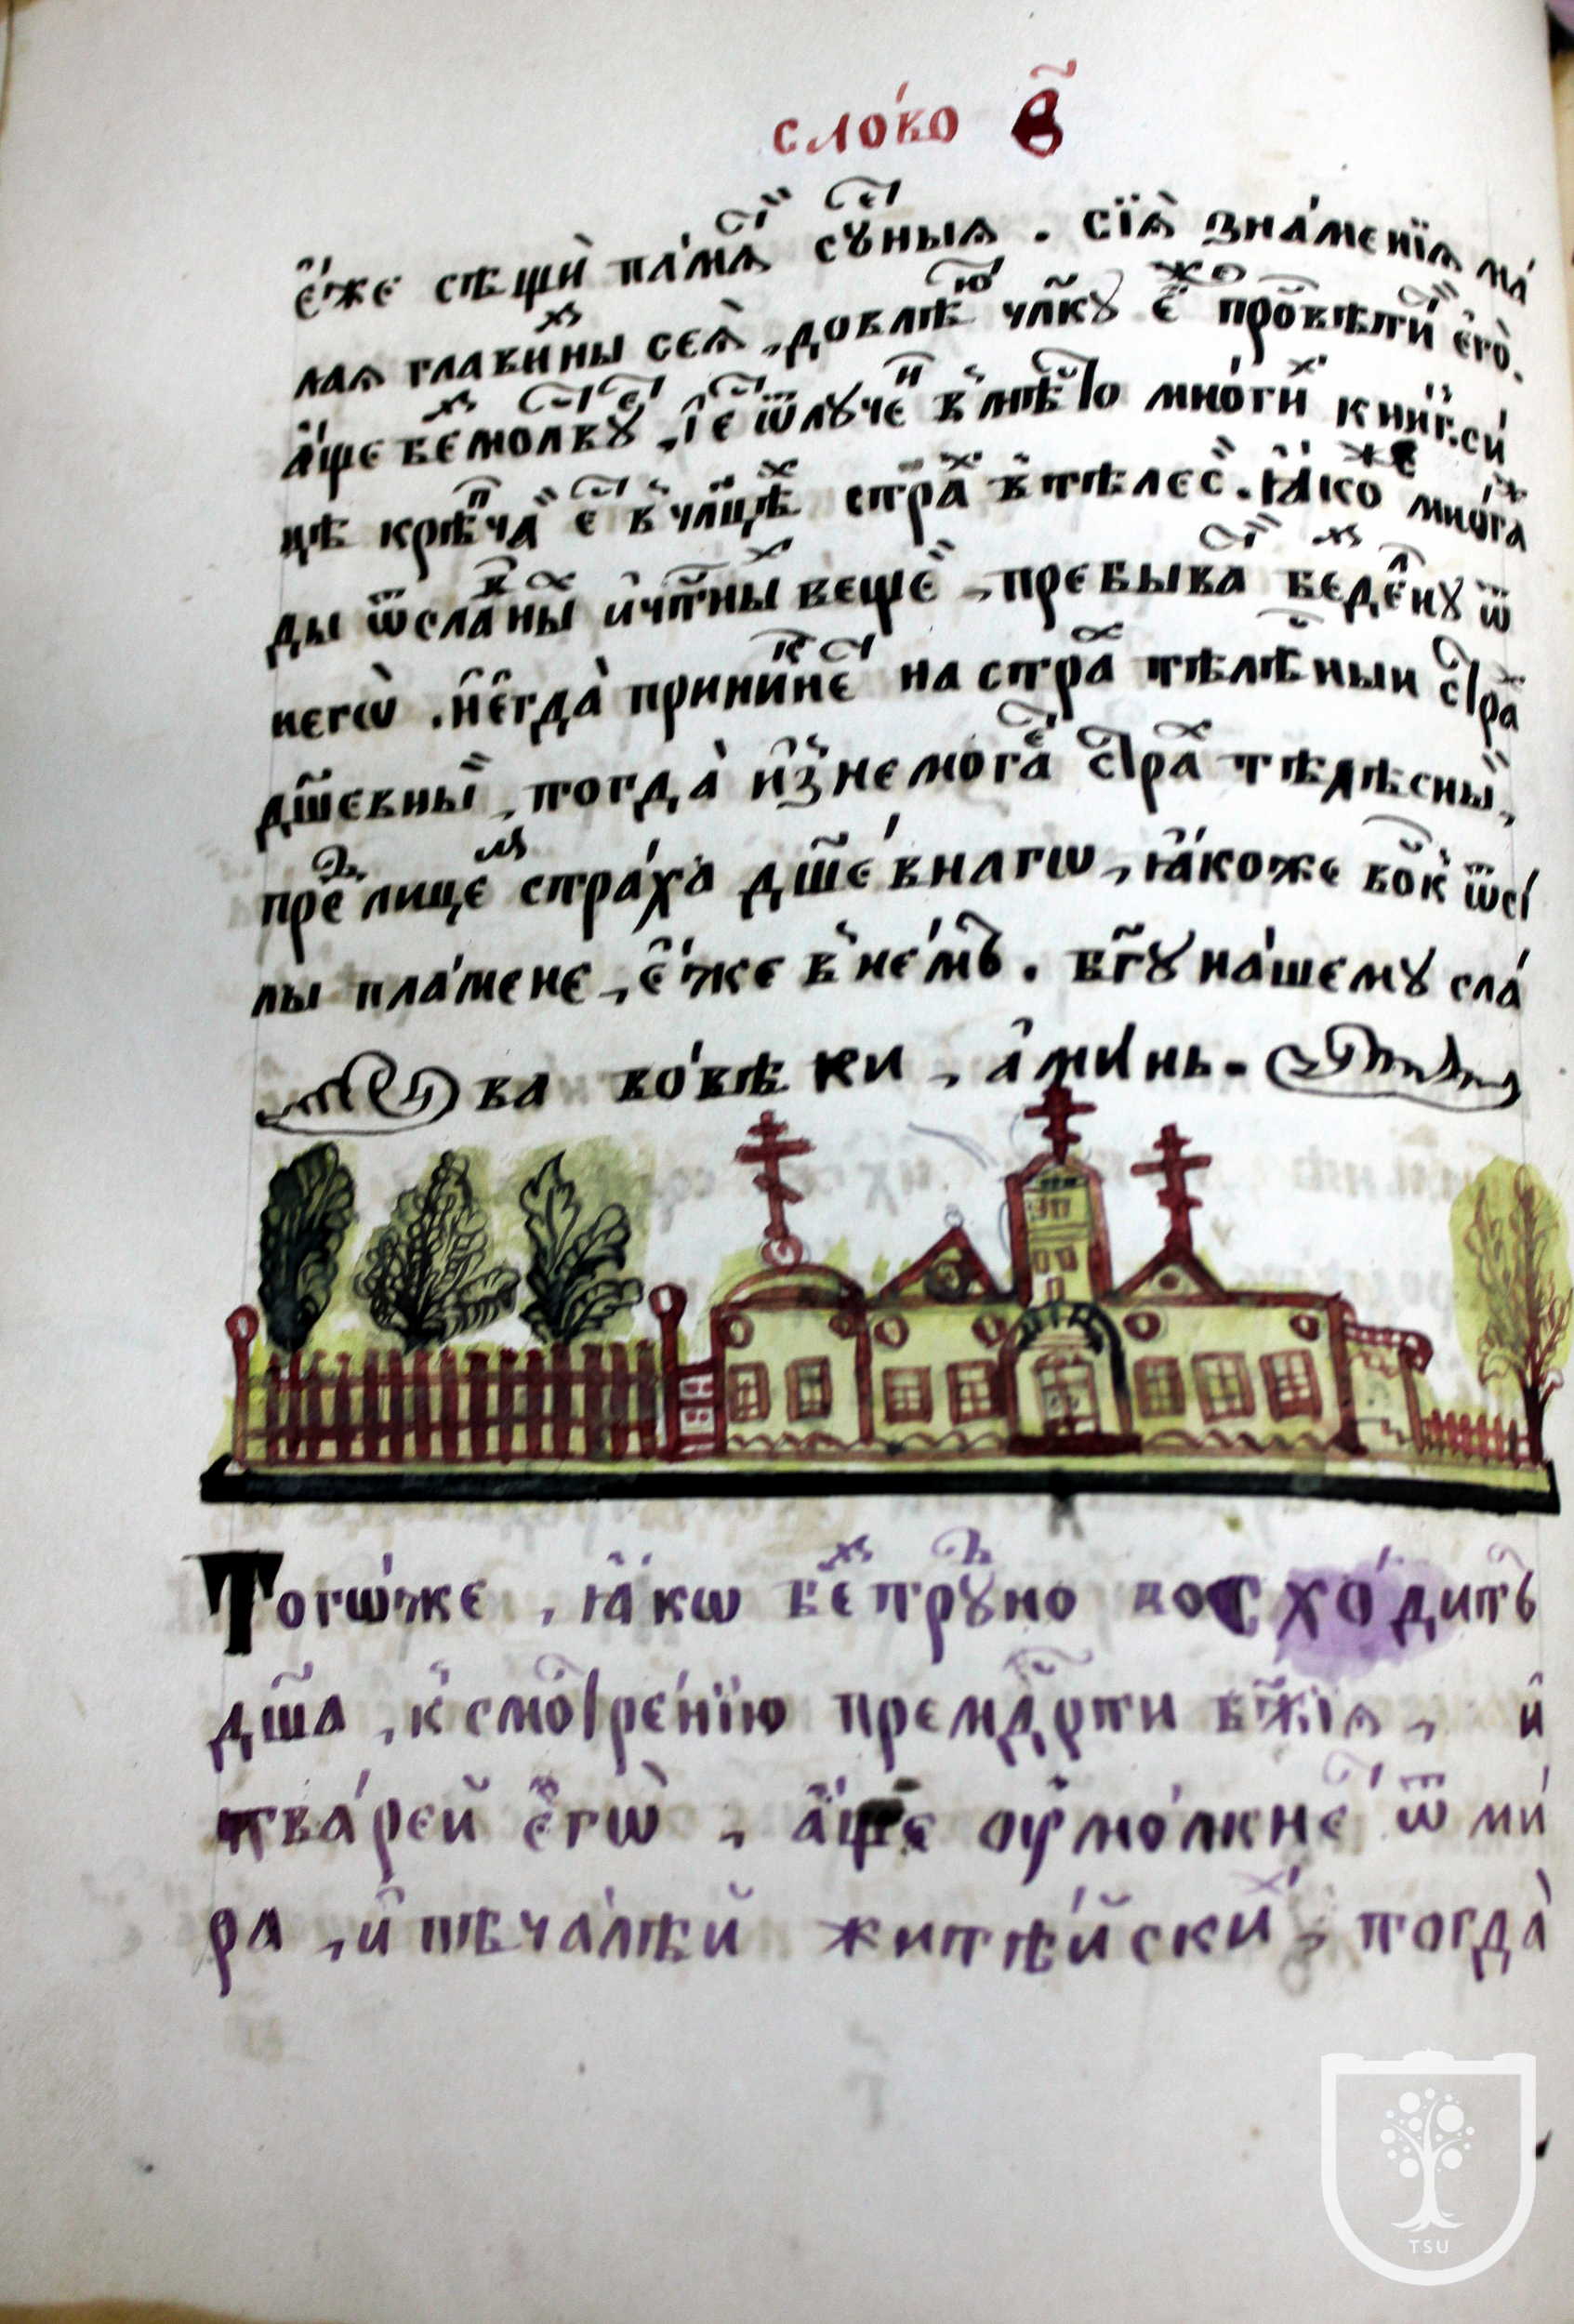 сло́во в҃
є҆́же сѣщѝ па́мѧⷮ сꙋєⷮныѧ. сїѧ̀ зна́менїѧ ма́
лаѧ главиⷥны сеѧ̀, довлѣюⷮ чл҃кꙋ є҆жⷤе проⷭвѣтиⷮ є҆го̀.
а҆́ще беⷥмолвꙋєⷮ, і҆ є҆сⷮ ѿлꙋчеⷩ҇ въ мѣⷭ҇то мно́гиⷯ книг. си́
цѣ крѣпⷱчаⷤ є҆сⷮ въ чл҃цѣⷯ страⷯ въ тѣлесⷯ. ꙗ҆́коже мно́га
ды ѿ сла́вⷩныⷯ и҆ чⷭ҇тныⷯ веще́й, пребыва́єⷮ беⷥ є҆ди́нꙋ ѿ
негѡ̀. и҆ є҆гда̀ прини́кнєⷮ на страⷯ тѣлѣⷭ҇ный страⷯ
дш҃евныⷤ, тогда̀ и҆знемога́єⷮ страⷯ тѣлѣсныⷤ,
преⷣ лице́мⷨ стра́ха дш҃е́внагѡ, ꙗ҆́коже во́скⷦ ѿ си́
лы пла́мене, є҆́же въ не́мъ. бг҃ꙋ на́шемꙋ сла́
ва во́вѣки, а҆ми́нь.
Тогѡ́же, ꙗ҆́кѡ беⷥ трꙋⷣно восхо́дитъ
дш҃а, къ смо́тре́нїю премⷣрⷭ҇ти бж҃їѧ, и҆
тва́рей є҆гѡ̀, а҆́ще ᲂу҆мо́лкнєⷮ ѿ ми́
ра, и҆ пѣча́лѣй житѣ́йскиⷯ, тогда̀
TSU